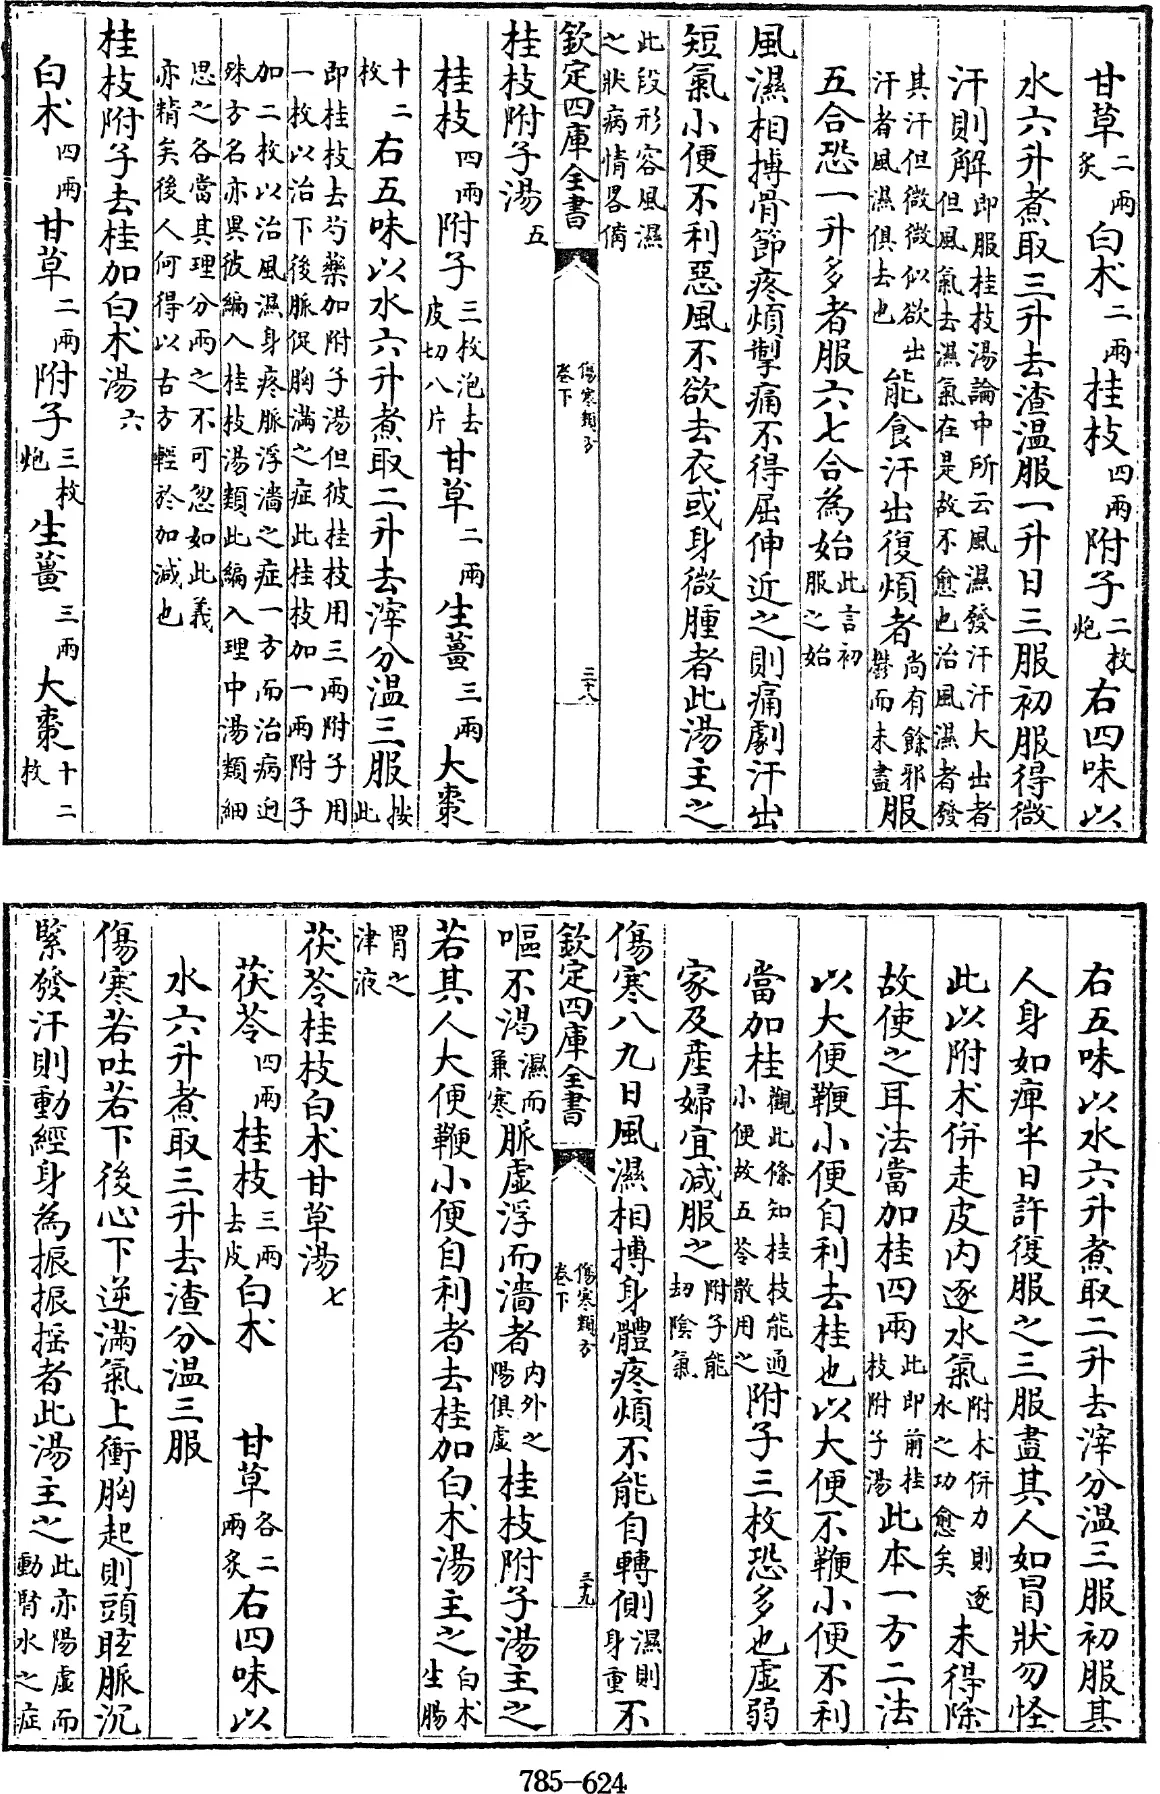 甘草二兩炙白术二兩桂枝四兩附子二枚炮右四味以
水六升煮取三升去渣温服一升日三服初服得微
汗則解即服桂枝湯論中所云風濕發汗汗大出者但風氣去濕氣在是故不愈也治風濕者發
其汗但微微似欲出汗者風濕俱去也能食汗出復煩者尚有餘邪鬱而未盡服
五合恐一升多者服六七合為始此言初服之始
風濕相搏骨節疼煩掣痛不得屈伸近之則痛劇汗出
短氣小便不利惡風不欲去衣或身微腫者此湯主之
此段形容風濕之狀病情畧備
欽定四庫全書 傷寒類方卷下 三十八
桂枝附子湯五
桂枝四兩附子三枚泡去皮切八片甘草二兩生薑三兩大棗
十二枚右五味以水六升煮取二升去滓分温三服按此
即桂枝去芍藥加附子湯但彼桂枝用三兩附子用一枚以治下後脈促胸滿之症此桂枝加一兩附子
加二枚以治風濕身疼脈浮濇之症一方而治病迥殊方名亦異彼編入桂枝湯類此編入理中湯類細
思之各當其理分兩之不可忽如此義亦精矣後人何得以古方輕於加減也
桂枝附子去桂加白术湯六
白术四兩甘草二兩附子三枚炮生薑三兩大棗十二枚
右五味以水六升煮取二升去滓分温三服初服其
人身如痺半日許復服之三服盡其人如冒狀勿怪
此以附术併走皮内逐水氣附术併力則逐水之功愈矣未得除
故使之耳法當加桂四兩此即前桂枝附子湯此本一方二法
以大便鞕小便自利去桂也以大便不鞕小便不利
當加桂觀此條知桂枝能通小便故五苓散用之附子三枚恐多也虛弱
家及産婦宜减服之附子能刼陰氣
傷寒八九日風濕相搏身體疼煩不能自轉側濕則身重不
欽定四庫全書 傷寒類方卷下 三十九
嘔不渴濕而兼寒脈虛浮而濇者内外之陽俱虛桂枝附子湯主之
若其人大便鞕小便自利者去桂加白术湯主之白术生腸
胃之津液
茯苓桂枝白术甘草湯七
茯苓四兩桂枝三兩去皮白术 甘草各二兩炙右四味以
水六升煮取三升去渣分温三服
傷寒若吐若下後心下逆滿氣上衝胸起則頭眩脈沉
緊發汗則動經身為振振揺者此湯主之此亦陽虛而動腎水之症
785-624